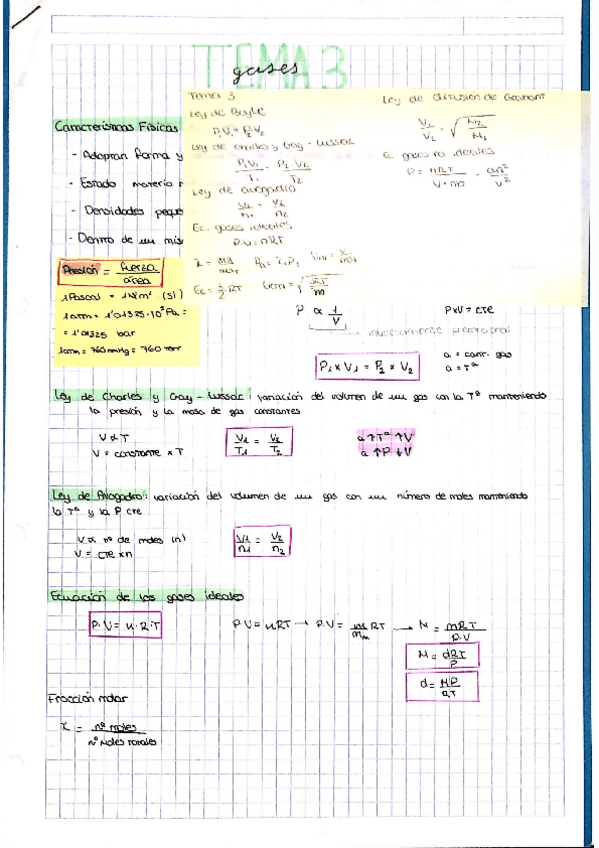 TEMA 3
gases
Tema 3
Ley de Boyle
P₁V₁ = P₂V₂
Ley de Charles y Gay-Lussac
P₁V₁/T₁ = P₂V₂/T₂
Ley de avogadro
V₁/n₁ = V₂/n₂
Ec. gases ideales
P·V = nRT
Ley de difusión de Graham
V₁/V₂ = √M₂/M₁
Ec. gases no ideales
P = nRT/V-nb - an²/v²
Características Físicas
- Adoptan forma y
- Estado materia
- Densidades pequ
- Dentro de un mis
Presión = fuerza/área
1 Pascal = 1N/m² (SI)
1atm = 1'01325·10⁵Pa =
= 1'01325 bar
1atm = 760mmHg = 760 torr
P ∝ 1/V
PxV = cte
inversamente proporcional
P₁ x V₁ = P₂ x V₂
a = cant. gas
a = Tª
Ley de Charles y Gay-Lussac: variación del volumen de un gas con la Tª manteniendo
la presión y la masa de gas constantes
V ∝ T
V = constante x T
V₁/T₁ = V₂/T₂
a ↑Tª ↑V
a ↑P ↓V
Ley de Avogadro: variación del volumen de un gas con un número de moles manteniendo
la Tª y la P cte
V ∝ nº de moles (n)
V = cte x n
V₁/n₁ = V₂/n₂
Ecuación de los gases ideales
P·V = n·R·T
P·V = nRT → P·V = m/Mm RT → M = mRT/P·V
M = dRT/P
d = MP/RT
Fracción molar
X = nº moles/nº moles totales